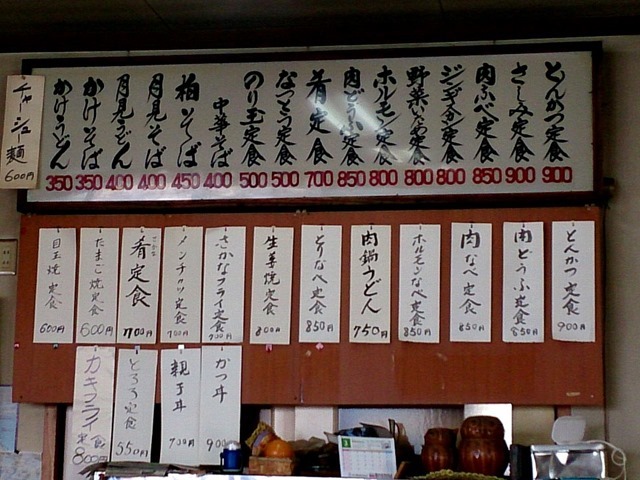 とんかつ定食 900
さしみ定食 900
肉なべ定食 850
ジンギスカン定食 800
野菜いため定食 800
ホルモン定食 800
肉どうふ定食 850
肴定食 700
なっとう定食 500
のり玉定食 500
中華そば 400
柏そば 450
月見そば 400
月見うどん 400
かけそば 350
かけうどん 350
チャーシュ麺 600円
とんかつ定食 900円
肉どうふ定食 850円
肉なべ定食 850円
ホルモンなべ定食 850円
肉鍋うどん 750円
とりなべ定食 850円
生姜焼定食 800円
さかなフライ定食 700円
メンチカツ定食 700円
肴定食 700円
さかな
たまご焼定食 600円
目玉焼定食 600円
かつ丼 900
親子丼 700円
とろろ定食 550円
カキフライ定食 800円